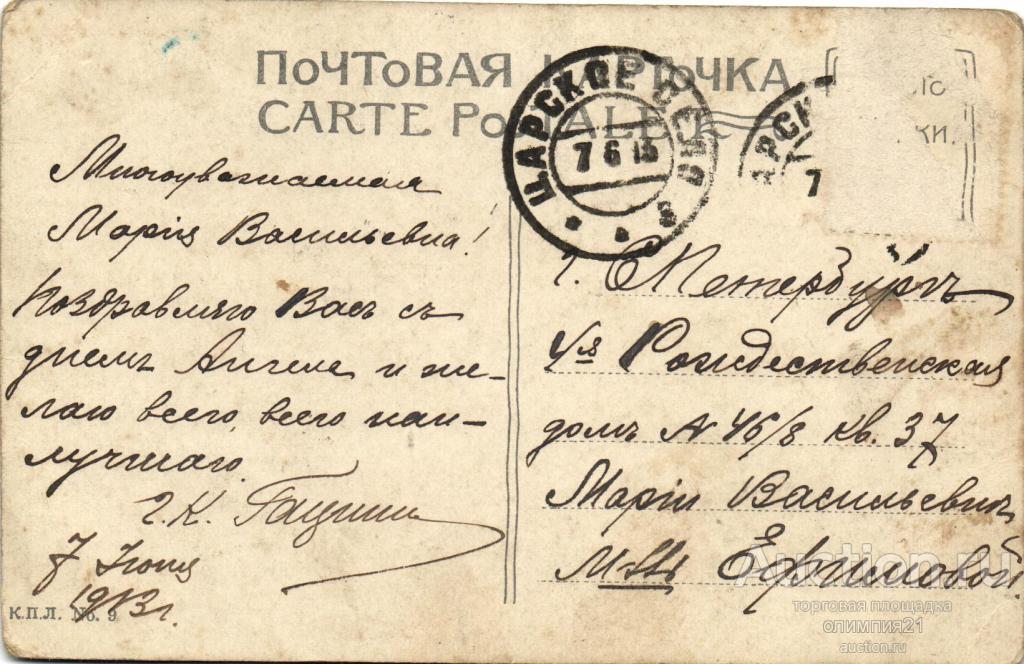 ПОЧТОВАЯ КАРТОЧКА
CARTE POSTALE
ЦАРСКОЕ СЕЛО
7 6 13
Многоуважаемая
Марія Васильевна!
Поздравляю Васъ съ
днемъ Ангела и же-
лаю всего, всего наи-
лучшаго.
7 Іюня
1913 г.
К.П.Л. No. 9
г. С Петербургъ
4/я Рождественская
домъ № 46/8 кв. 37
Маріи Васильевнѣ
Ефимовой
Auction.ru
торговая площадка
олимпия21
auction.ru